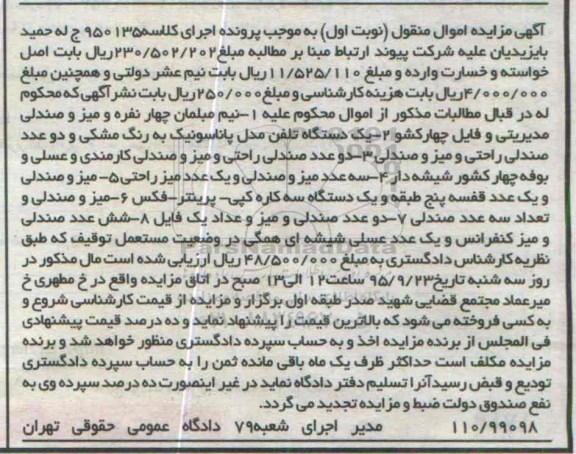 آگهی مزایده اموال منقول (نوبت اول) به موجب پرونده اجرای کلاسه۹۵۰۱۳۵ ج له حمید
بایزیدیان علیه شرکت پیوند ارتباط مبنا بر مطالبه مبلغ۲۳۰/۵۰۲/۲۰۲ریال بابت اصل
خواسته و خسارت وارده و مبلغ ۱۱/۵۲۵/۱۱۰ریال بابت نیم عشر دولتی و همچنین مبلغ
۴/۰۰۰/۰۰۰ریال بابت هزینه کارشناسی و مبلغ۲۵۰/۰۰۰ریال بابت نشر آگهی که محکوم
له در قبال مطالبات مذکور از اموال محکوم علیه ۱-نیم مبلمان چهار نفره و میز و صندلی
مدیریتی و فایل چهارکشو ۲-یک دستگاه تلفن مدل پاناسونیک به رنگ مشکی و دو عدد
صندلی راحتی و میز و صندلی۳-دو عدد صندلی راحتی و میز و صندلی کارمندی و عسلی و
بوفه چهار کشور شیشه دار ۴-سه عدد میز و صندلی و یک عدد میز راحتی ۵-میز و صندلی
و یک عدد قفسه پنج طبقه و یک دستگاه سه کاره کپی- پرینتر-فکس ۶-میز و صندلی و
تعداد سه عدد صندلی ۷-دو عدد صندلی و میز و عداد یک فایل ۸-شش عدد صندلی
و میز کنفرانس و یک عدد عسلی شیشه ای همگی در وضعیت مستعمل توقیف که طبق
نظریه کارشناس دادگستری به مبلغ ۴۸/۵۰۰/۰۰۰ریال ارزیابی شده است مال مذکور در
روز سه شنبه تاریخ۹۵/۹/۲۳ ساعت۱۲ الی۱۳ صبح در اتاق مزایده واقع در خ مطهری خ
میرعماد مجتمع قضایی شهید صدر طبقه اول برگزار و مزایده از قیمت کارشناسی شروع و
به کسی فروخته می شود که بالاترین قیمت را پیشنهاد نماید و ده درصد قیمت پیشنهادی
فی المجلس از برنده مزایده اخذ و به حساب سپرده دادگستری منظور خواهد شد و برنده
مزایده مکلف است حداکثر ظرف یک ماه باقی مانده ثمن را به حساب سپرده دادگستری
تودیع و قبض رسیدآنرا تسلیم دفتر دادگاه نماید در غیر اینصورت ده درصد سپرده وی به
نفع صندوق دولت ضبط و مزایده تجدید می گردد.
۱۱۰/۹۹۰۹۸ مدیر اجرای شعبه۷۹ دادگاه عمومی حقوقی تهران